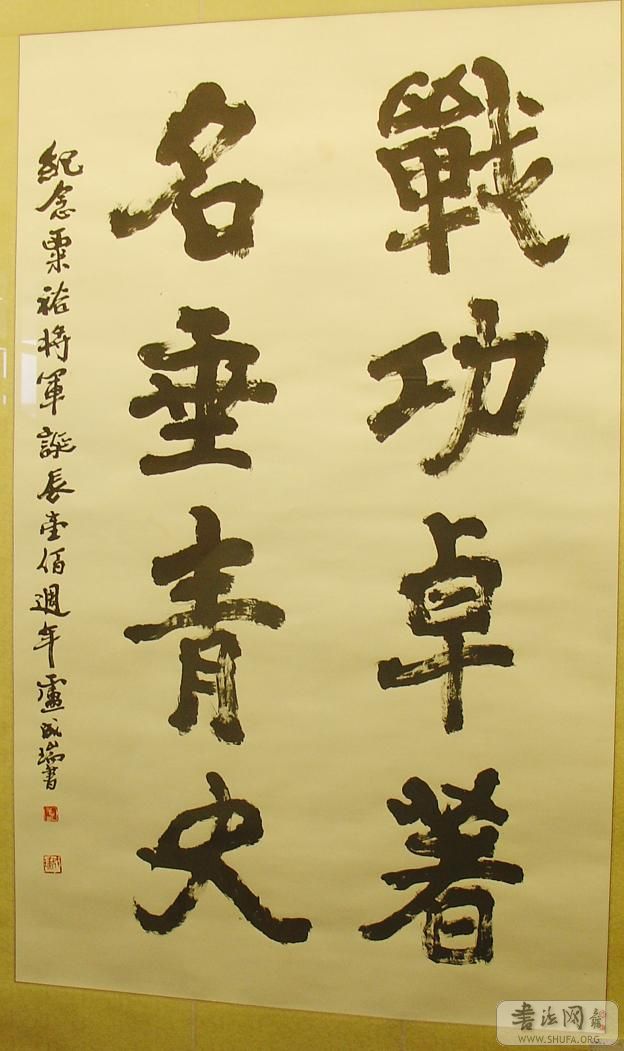 戰功卓著
名垂青史
紀念粟裕將軍誕辰壹佰週年 盧成瑞書
書法网
WWW.SHUFA.ORG